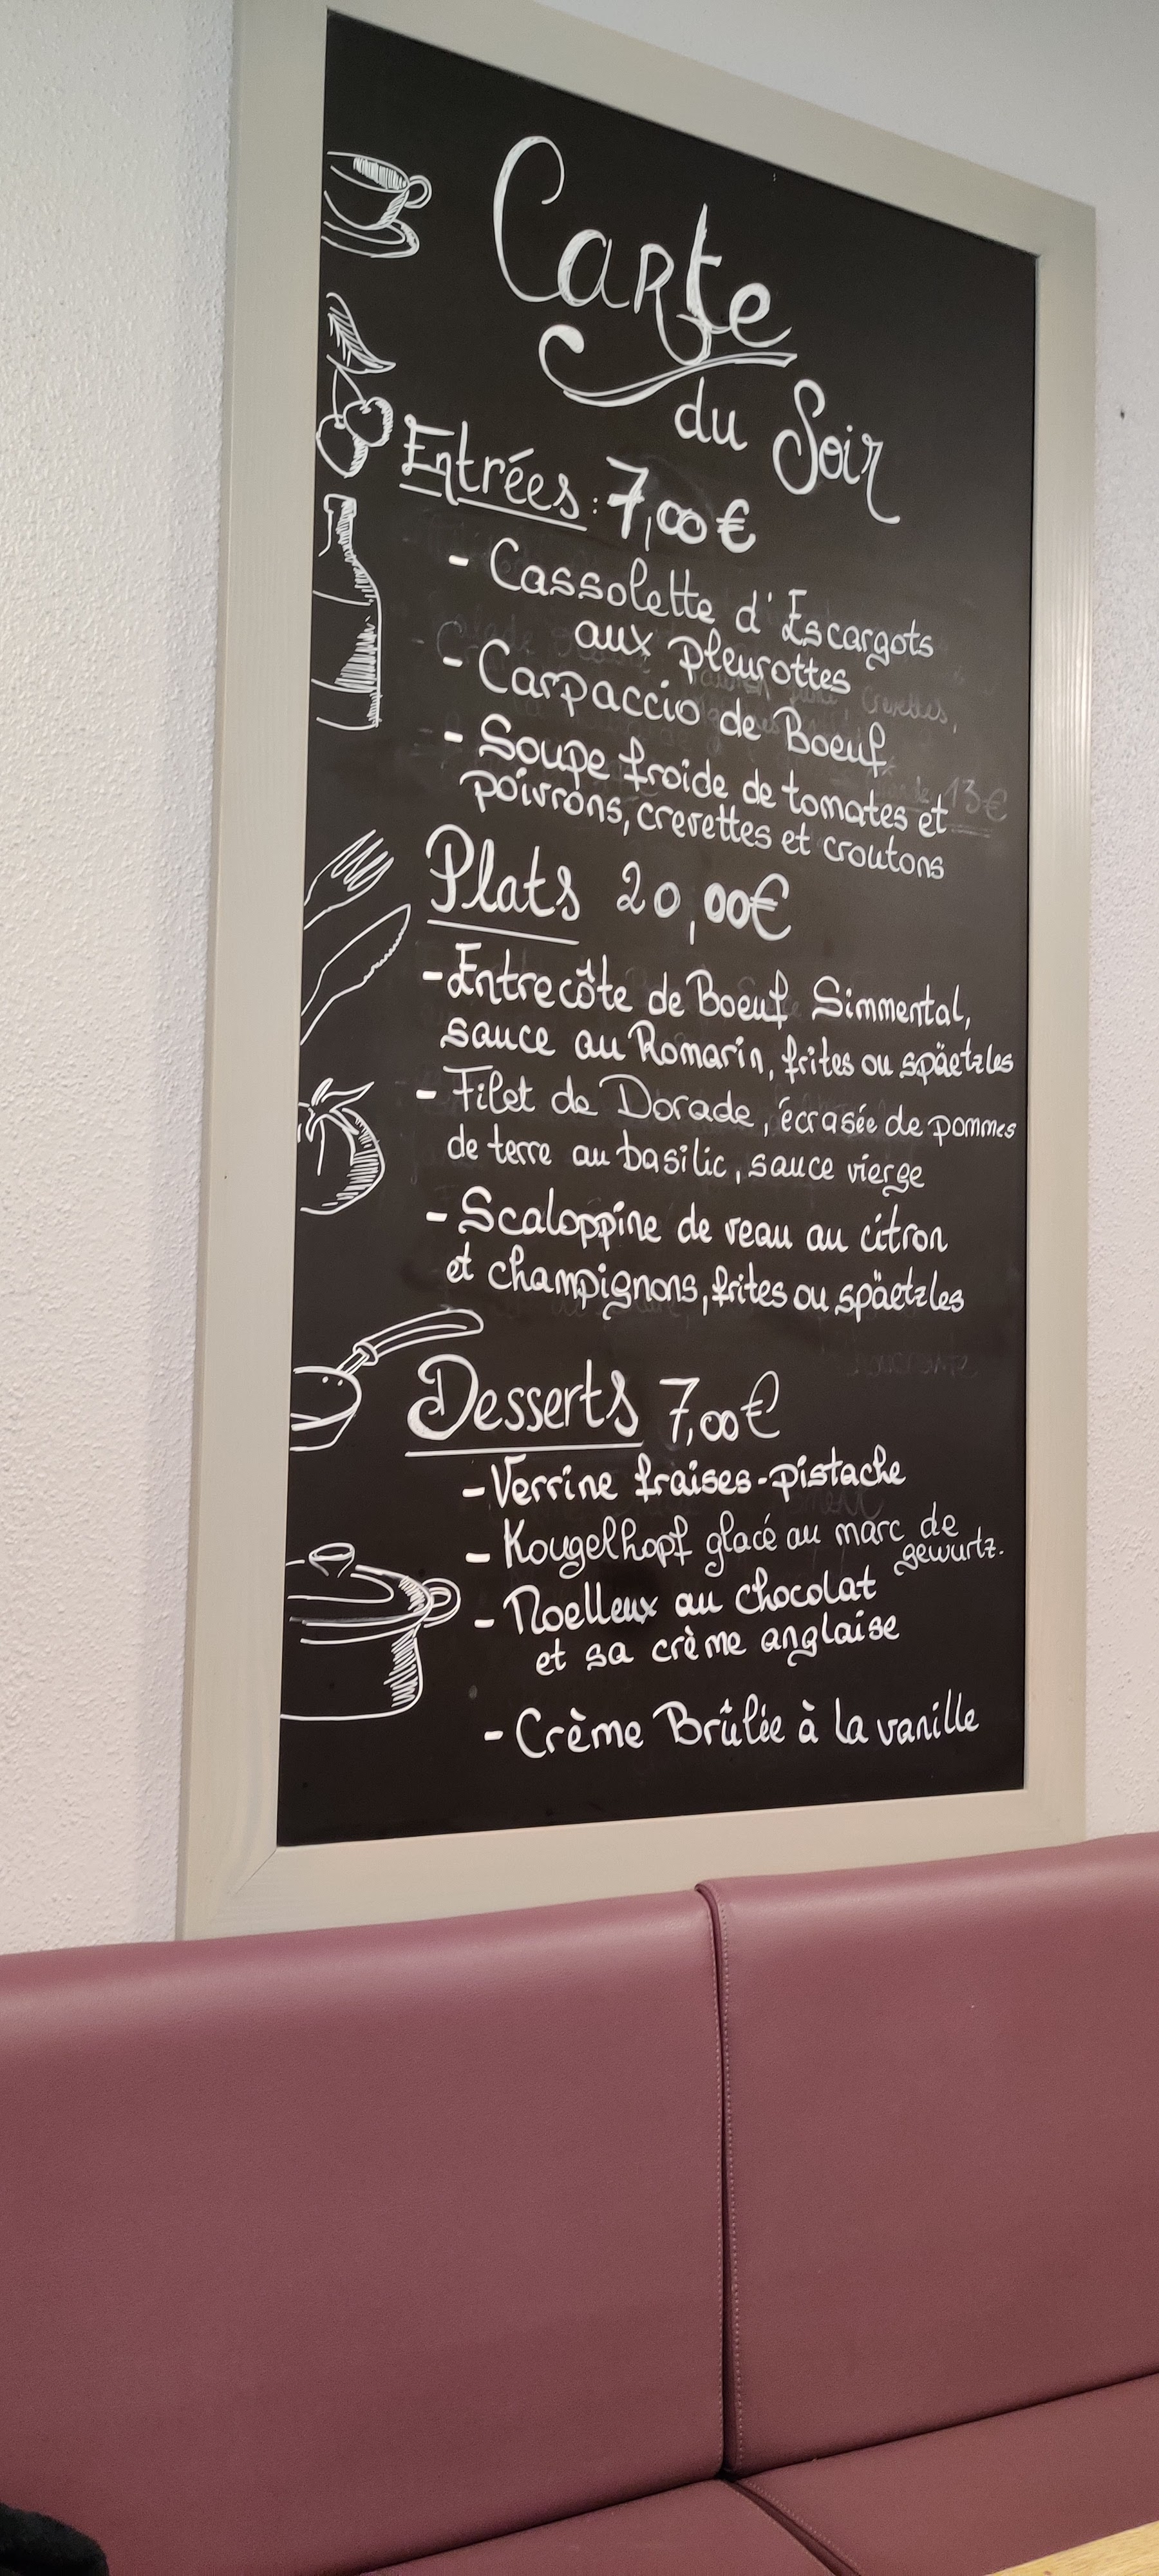 Carte
du Soir
Entrées : 7,00€
- Cassolette d'Escargots
aux pleurottes
- Carpaccio de Boeuf
- Soupe froide de tomates et
poivrons, crevettes et croutons
Plats 20,00€
- Entrecôte de Boeuf Simmental,
sauce au Romarin, frites ou späetzles
- Filet de Dorade, écrasée de pommes
de terre au basilic, sauce vierge
- Scaloppine de veau au citron
et champignons, frites ou späetzles
Desserts 7,00€
- Verrine fraises-pistache
- Kougelhopf glacé au marc de
gewurtz.
- Moelleux au chocolat
et sa crème anglaise
- Crème Brûlée à la vanille